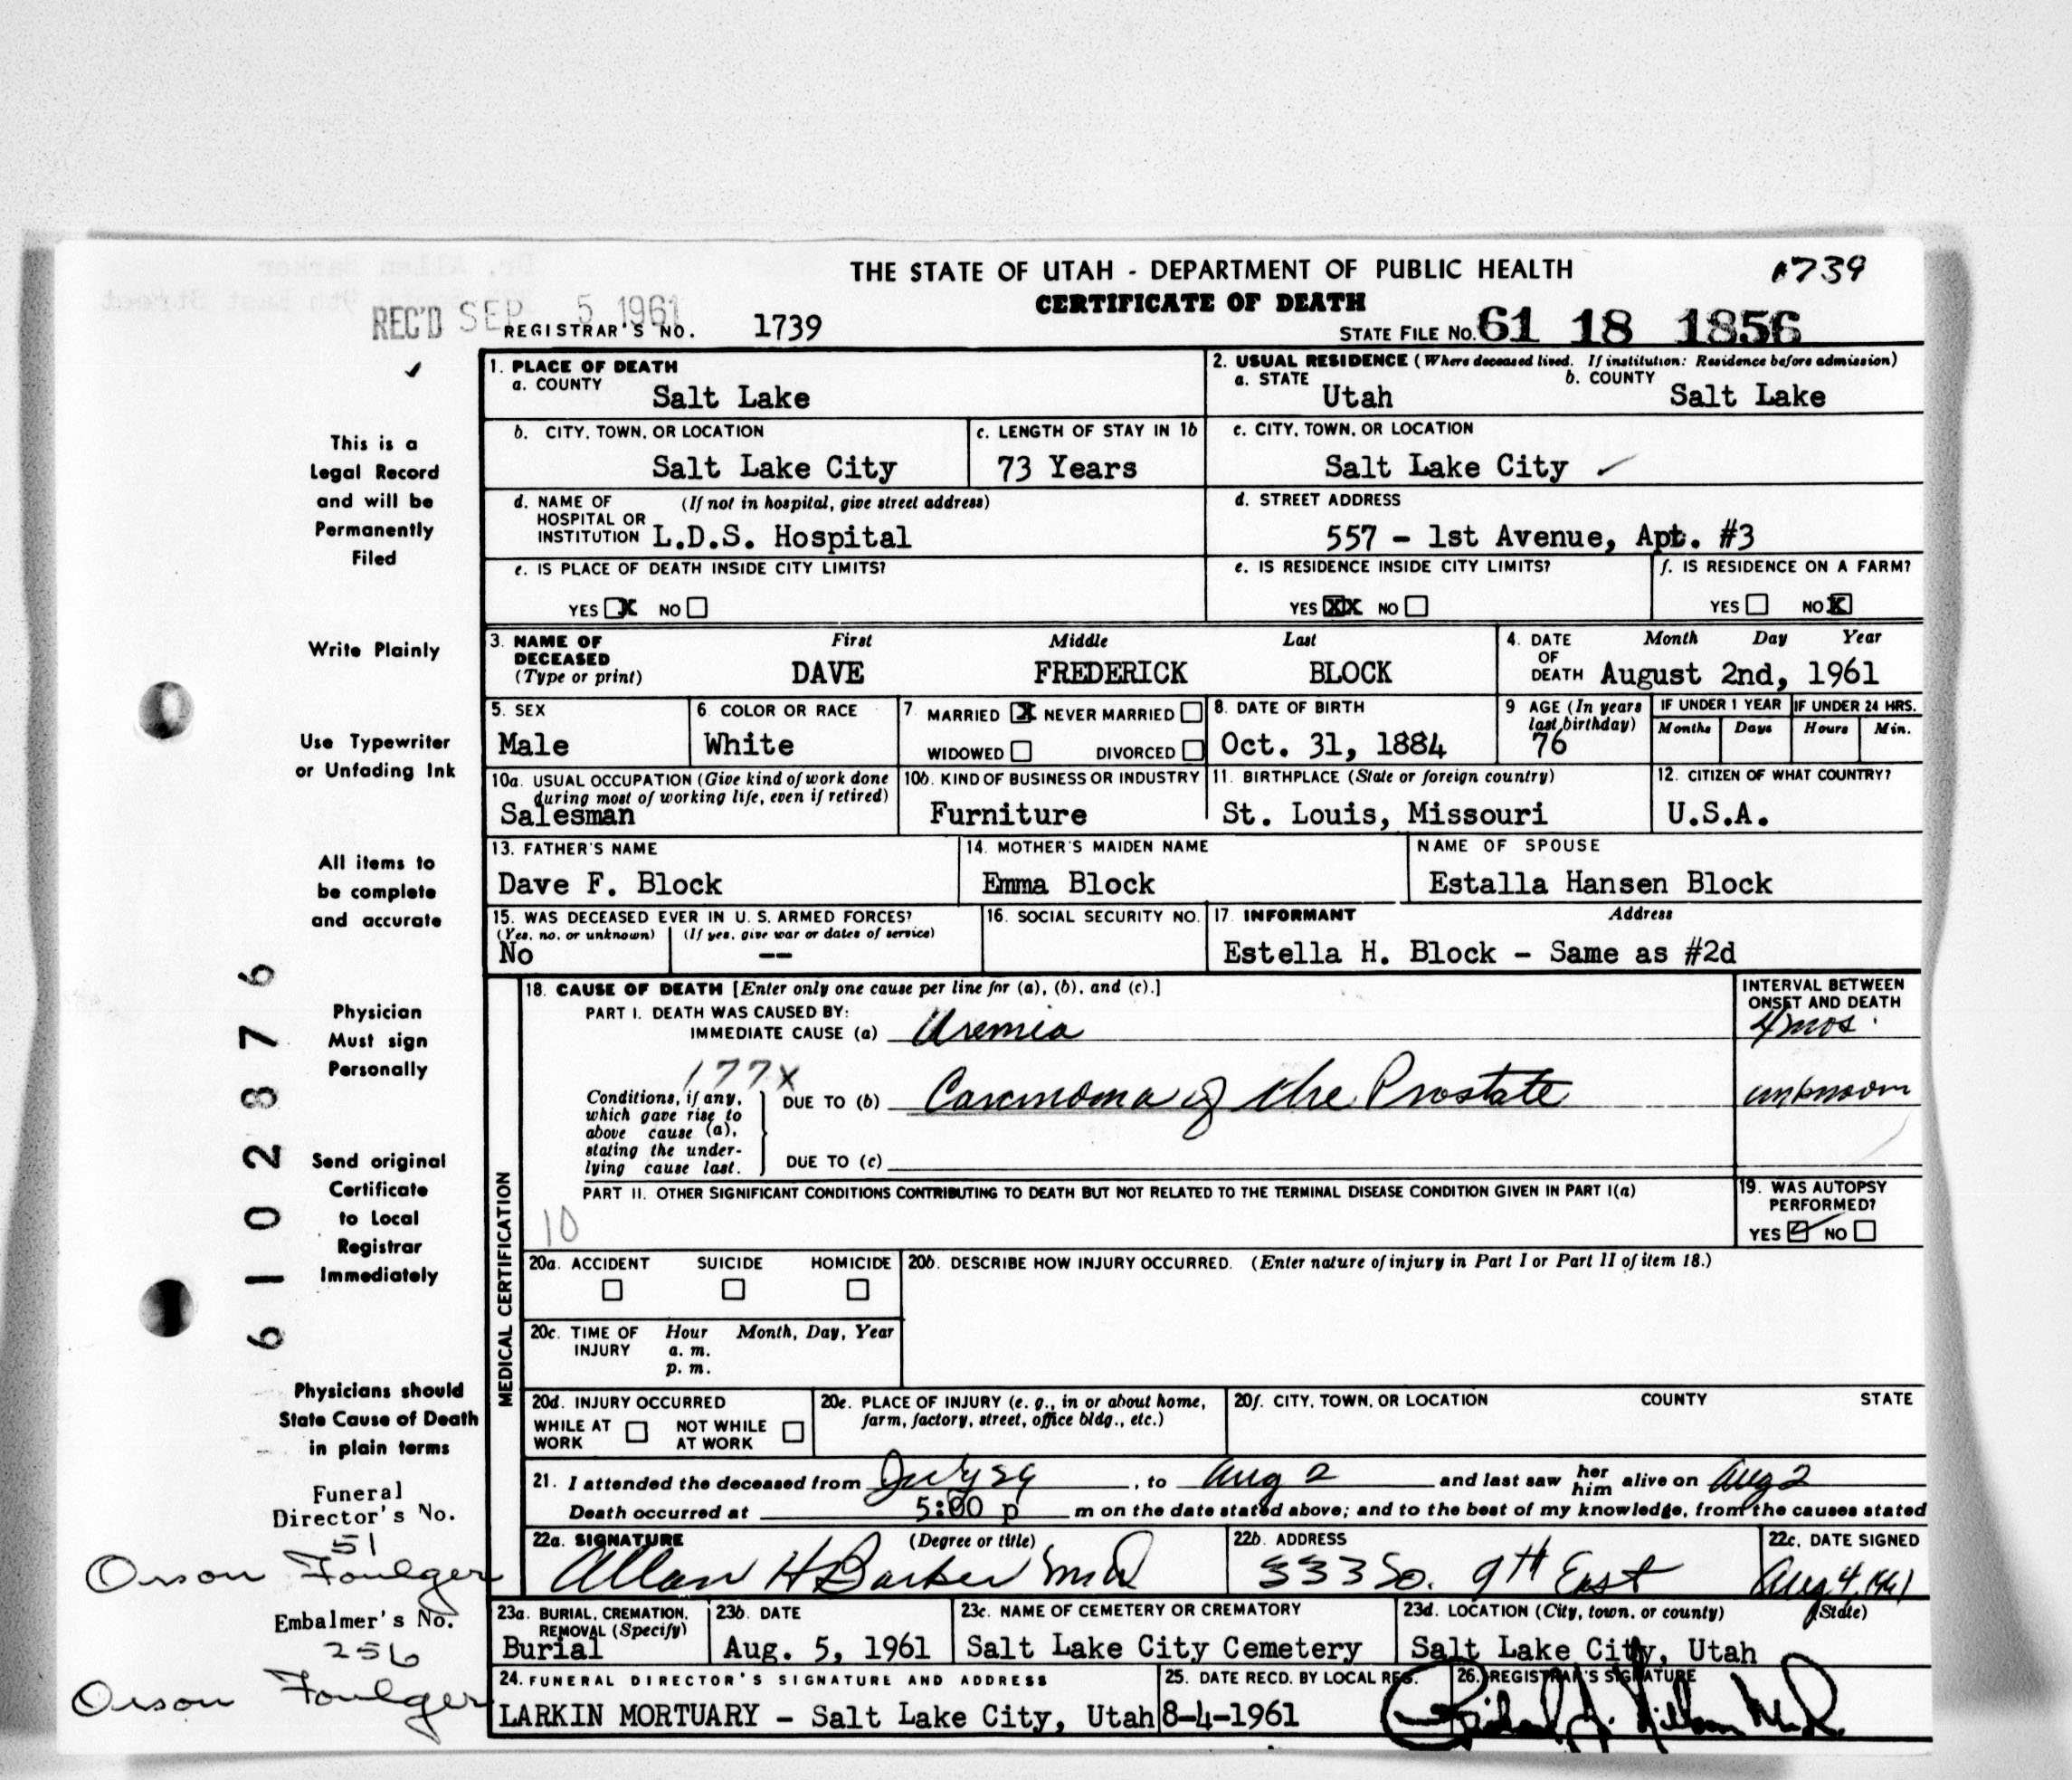 THE STATE OF UTAH - DEPARTMENT OF PUBLIC HEALTH
1739
CERTIFICATE OF DEATH
REC'D SEP 5 1961
REGISTRAR'S NO. 1739
STATE FILE NO. 61 18 1856
1. PLACE OF DEATH
a. COUNTY
Salt Lake
2. USUAL RESIDENCE (Where deceased lived. If institution: Residence before admission)
a. STATE b. COUNTY
Utah Salt Lake
b. CITY, TOWN, OR LOCATION
Salt Lake City
c. LENGTH OF STAY IN 1b
73 Years
c. CITY, TOWN, OR LOCATION
Salt Lake City
d. NAME OF (If not in hospital, give street address)
HOSPITAL OR
INSTITUTION L.D.S. Hospital
d. STREET ADDRESS
557 - 1st Avenue, Apt. #3
e. IS PLACE OF DEATH INSIDE CITY LIMITS?
YES X NO
e. IS RESIDENCE INSIDE CITY LIMITS?
YES XX NO
f. IS RESIDENCE ON A FARM?
YES NO X
3. NAME OF First Middle Last
DECEASED
(Type or print) DAVE FREDERICK BLOCK
4. DATE Month Day Year
OF
DEATH August 2nd, 1961
5. SEX
Male
6. COLOR OR RACE
White
7 MARRIED X NEVER MARRIED
WIDOWED DIVORCED
8. DATE OF BIRTH
Oct. 31, 1884
9 AGE (In years
last birthday)
76
IF UNDER 1 YEAR
Months Days
IF UNDER 24 HRS.
Hours Min.
10a. USUAL OCCUPATION (Give kind of work done
during most of working life, even if retired)
Salesman
10b. KIND OF BUSINESS OR INDUSTRY
Furniture
11. BIRTHPLACE (State or foreign country)
St. Louis, Missouri
12. CITIZEN OF WHAT COUNTRY?
U.S.A.
13. FATHER'S NAME
Dave F. Block
14. MOTHER'S MAIDEN NAME
Emma Block
NAME OF SPOUSE
Estalla Hansen Block
15. WAS DECEASED EVER IN U. S. ARMED FORCES?
(Yes, no, or unknown) (If yes, give war or dates of service)
No --
16. SOCIAL SECURITY NO.
17. INFORMANT Address
Estella H. Block - Same as #2d
MEDICAL CERTIFICATION
18. CAUSE OF DEATH [Enter only one cause per line for (a), (b), and (c).]
PART I. DEATH WAS CAUSED BY:
IMMEDIATE CAUSE (a) Uremia
INTERVAL BETWEEN
ONSET AND DEATH
4 mos.
177X
Conditions, if any,
which gave rise to
above cause (a),
stating the under-
lying cause last.
DUE TO (b) Carcinoma of the Prostate
unknown
DUE TO (c)
PART II. OTHER SIGNIFICANT CONDITIONS CONTRIBUTING TO DEATH BUT NOT RELATED TO THE TERMINAL DISEASE CONDITION GIVEN IN PART I(a)
10
19. WAS AUTOPSY
PERFORMED?
YES ✓ NO
20a. ACCIDENT SUICIDE HOMICIDE
20b. DESCRIBE HOW INJURY OCCURRED. (Enter nature of injury in Part I or Part II of item 18.)
20c. TIME OF Hour Month, Day, Year
INJURY a. m.
p. m.
20d. INJURY OCCURRED
WHILE AT WORK NOT WHILE AT WORK
20e. PLACE OF INJURY (e. g., in or about home,
farm, factory, street, office bldg., etc.)
20f. CITY, TOWN, OR LOCATION COUNTY STATE
21. I attended the deceased from July 29, to Aug 2 and last saw her him alive on Aug 2
Death occurred at 5:00 p m on the date stated above; and to the best of my knowledge, from the causes stated
22a. SIGNATURE (Degree or title)
Allan H Barker M D
22b. ADDRESS
333 So. 9th East
22c. DATE SIGNED
Aug 4, 1961
23a. BURIAL, CREMATION,
REMOVAL (Specify)
Burial
23b. DATE
Aug. 5, 1961
23c. NAME OF CEMETERY OR CREMATORY
Salt Lake City Cemetery
23d. LOCATION (City, town, or county) (State)
Salt Lake City, Utah
24. FUNERAL DIRECTOR'S SIGNATURE AND ADDRESS
LARKIN MORTUARY - Salt Lake City, Utah
25. DATE RECD. BY LOCAL REG.
8-4-1961
26. REGISTRAR'S SIGNATURE
This is a
Legal Record
and will be
Permanently
Filed
Write Plainly
Use Typewriter
or Unfading Ink
All items to
be complete
and accurate
Physician
Must sign
Personally
Send original
Certificate
to Local
Registrar
Immediately
Physicians should
State Cause of Death
in plain terms
Funeral
Director's No.
51
Orson Foulger
Embalmer's No.
256
Orson Foulger
61028 76